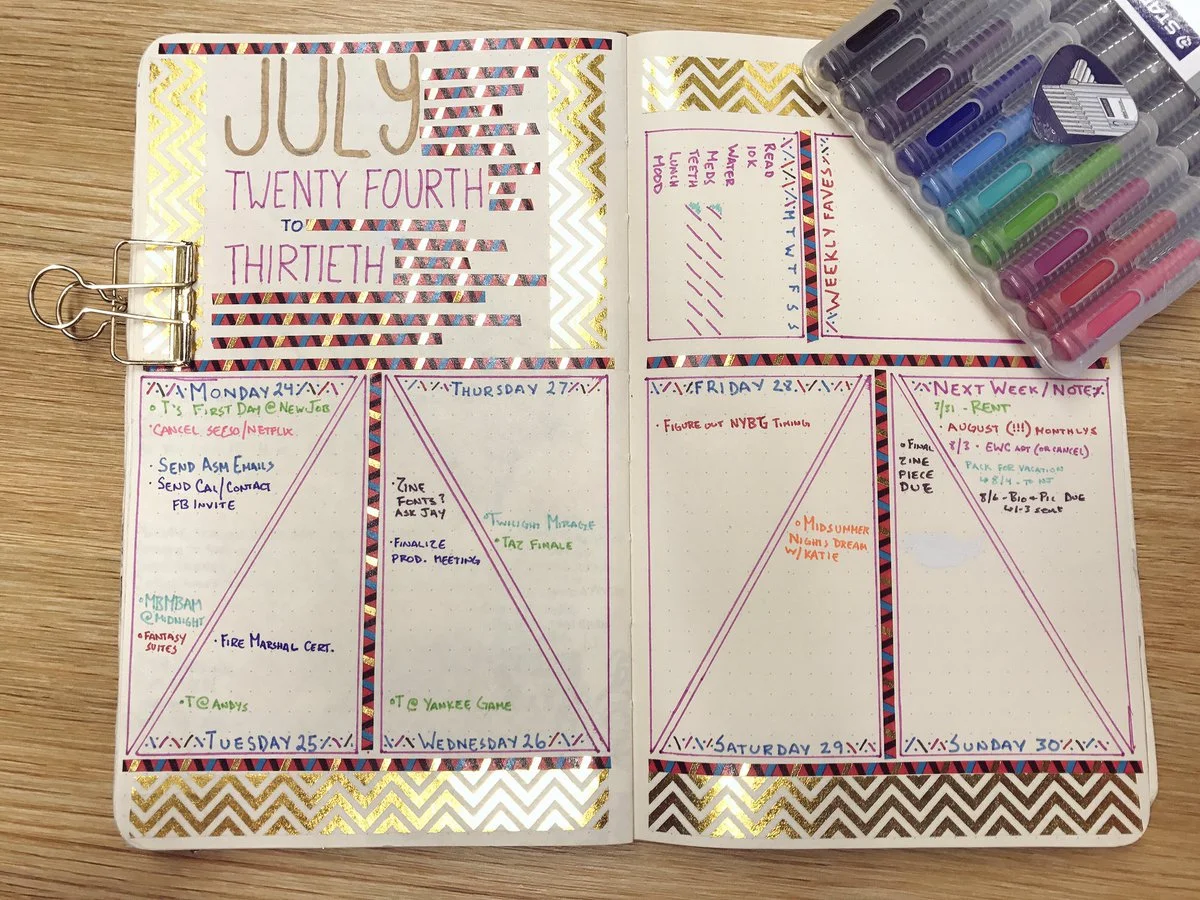 JULY
TWENTY FOURTH
TO
THIRTIETH
READ
10K
WATER
MEDS
TEETH
LUNCH
MOOD
M T W T F S S
WEEKLY FAVES
STA
MONDAY 24
T'S FIRST DAY @ NEW JOB
CANCEL SEESO/NETFLIX
· SEND ASM EMAILS
· SEND CAL/CONTACT
FB INVITE
MBMBAM
@MIDNIGHT
FANTASY
SUITES
· FIRE MARSHAL CERT.
· T@ANDYS
TUESDAY 25
THURSDAY 27
· ZINE
FONTS?
ASK JAY
· FINALIZE
PROD. MEETING
TWILIGHT MIRAGE
· TAZ FINALE
· T @ YANKEE GAME
WEDNESDAY 26
FRIDAY 28
· FIGURE OUT NYBG TIMING
MIDSUMMER
NIGHTS DREAM
W/KATIE
SATURDAY 29
NEXT WEEK/NOTES
7/31 - RENT
· AUGUST (!!!) MONTHLYS
8/3 - EWC APT (OR CANCEL)
PACK FOR VACATION
↳ 8/4 - TO NJ
8/6 - BIO + PIC DUE
W/ 1-3 SENT
· FINAL
ZINE
PIECE
DUE
SUNDAY 30